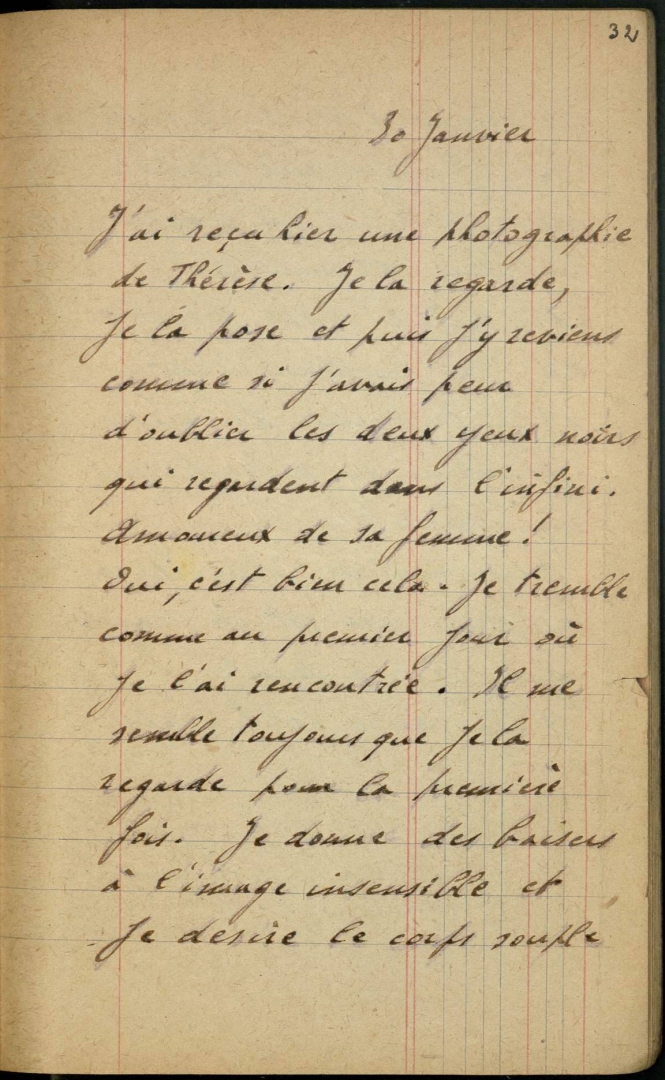 32
30 Janvier
J'ai reçu hier une photographie
de Thérèse. Je la regarde,
Je la pose et puis j'y reviens
comme si j'avais peur
d'oublier les deux yeux noirs
qui regardent dans l'infini.
Amoureux de sa femme !
Oui, c'est bien cela. Je tremble
comme au premier jour où
Je l'ai rencontrée. Il me
semble toujours que Je la
regarde pour la première
fois. Je donne des baisers
à l'image insensible et
Je desire le corps souple